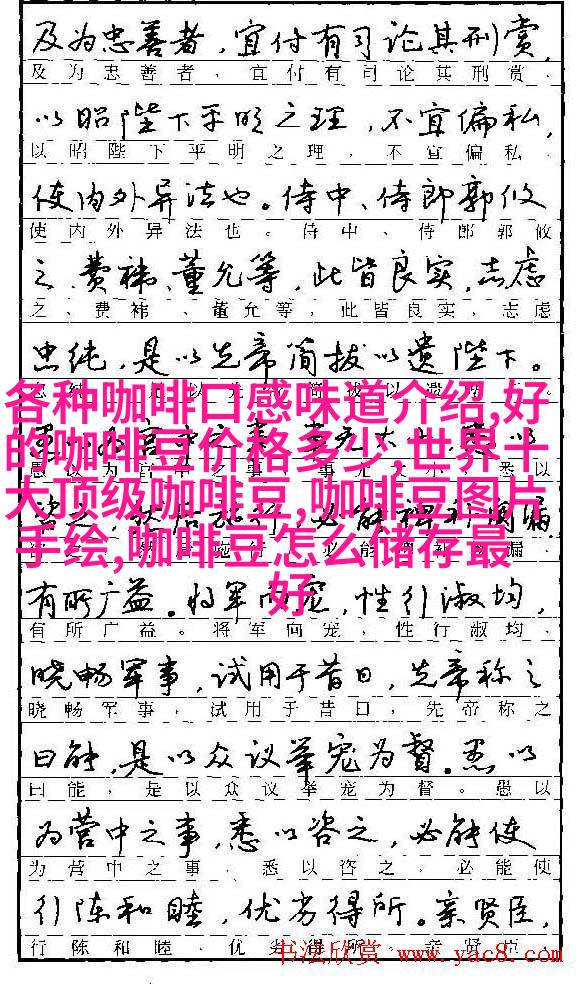 及为忠善者，宜付有司论其刑赏，
及为忠善者，宜付有司论其刑赏，
以昭陛下平明之理，不宜偏私，
以昭陛下平明之理，不宜偏私，
使内外异法也。侍中、侍郎郭攸
使内外异法也。侍中、侍郎郭攸
之、费祎、董允等，此皆良实，志虑
之、费祎、董允等，此皆良实，志虑
忠纯，是以先帝简拔以遗陛下。
各种咖啡口感味道介绍,好
的咖啡豆价格多少,世界十
大顶级咖啡豆,咖啡豆图片
手绘,咖啡豆怎么储存最
好
有所广益。将军向宠，性行淑均，
有所广益。将军向宠，性行淑均，
晓畅军事，试用于昔日，先帝称之
晓畅军事，试用于昔日，先帝称之
曰能，是以众议举宠为督。愚以
曰能，是以众议举宠为督。愚以
为营中之事，悉以咨之，必能使
为营中之事，悉以咨之，必能使
行阵和睦，优劣得所。亲贤臣，
行阵和睦，优劣得所。亲贤臣，
书法欣赏 www.yac8.com